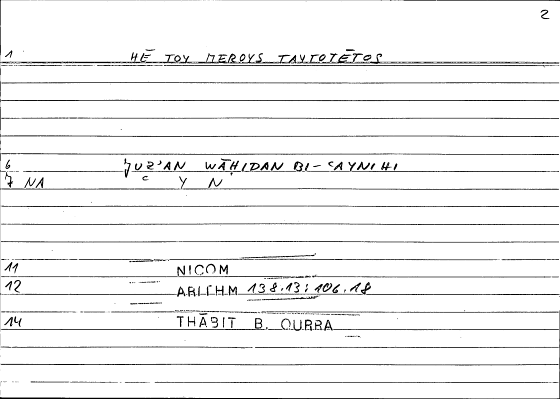 2
1 HĒ TOY MEROYS TAYTOTĒTOS
6 ǦUZ'AN WĀḤIDAN BI-ʿAYNIHI
7 NA C Y N
11 NICOM
12 ARITHM 138.13; 106.18
14 THĀBIT B. QURRA